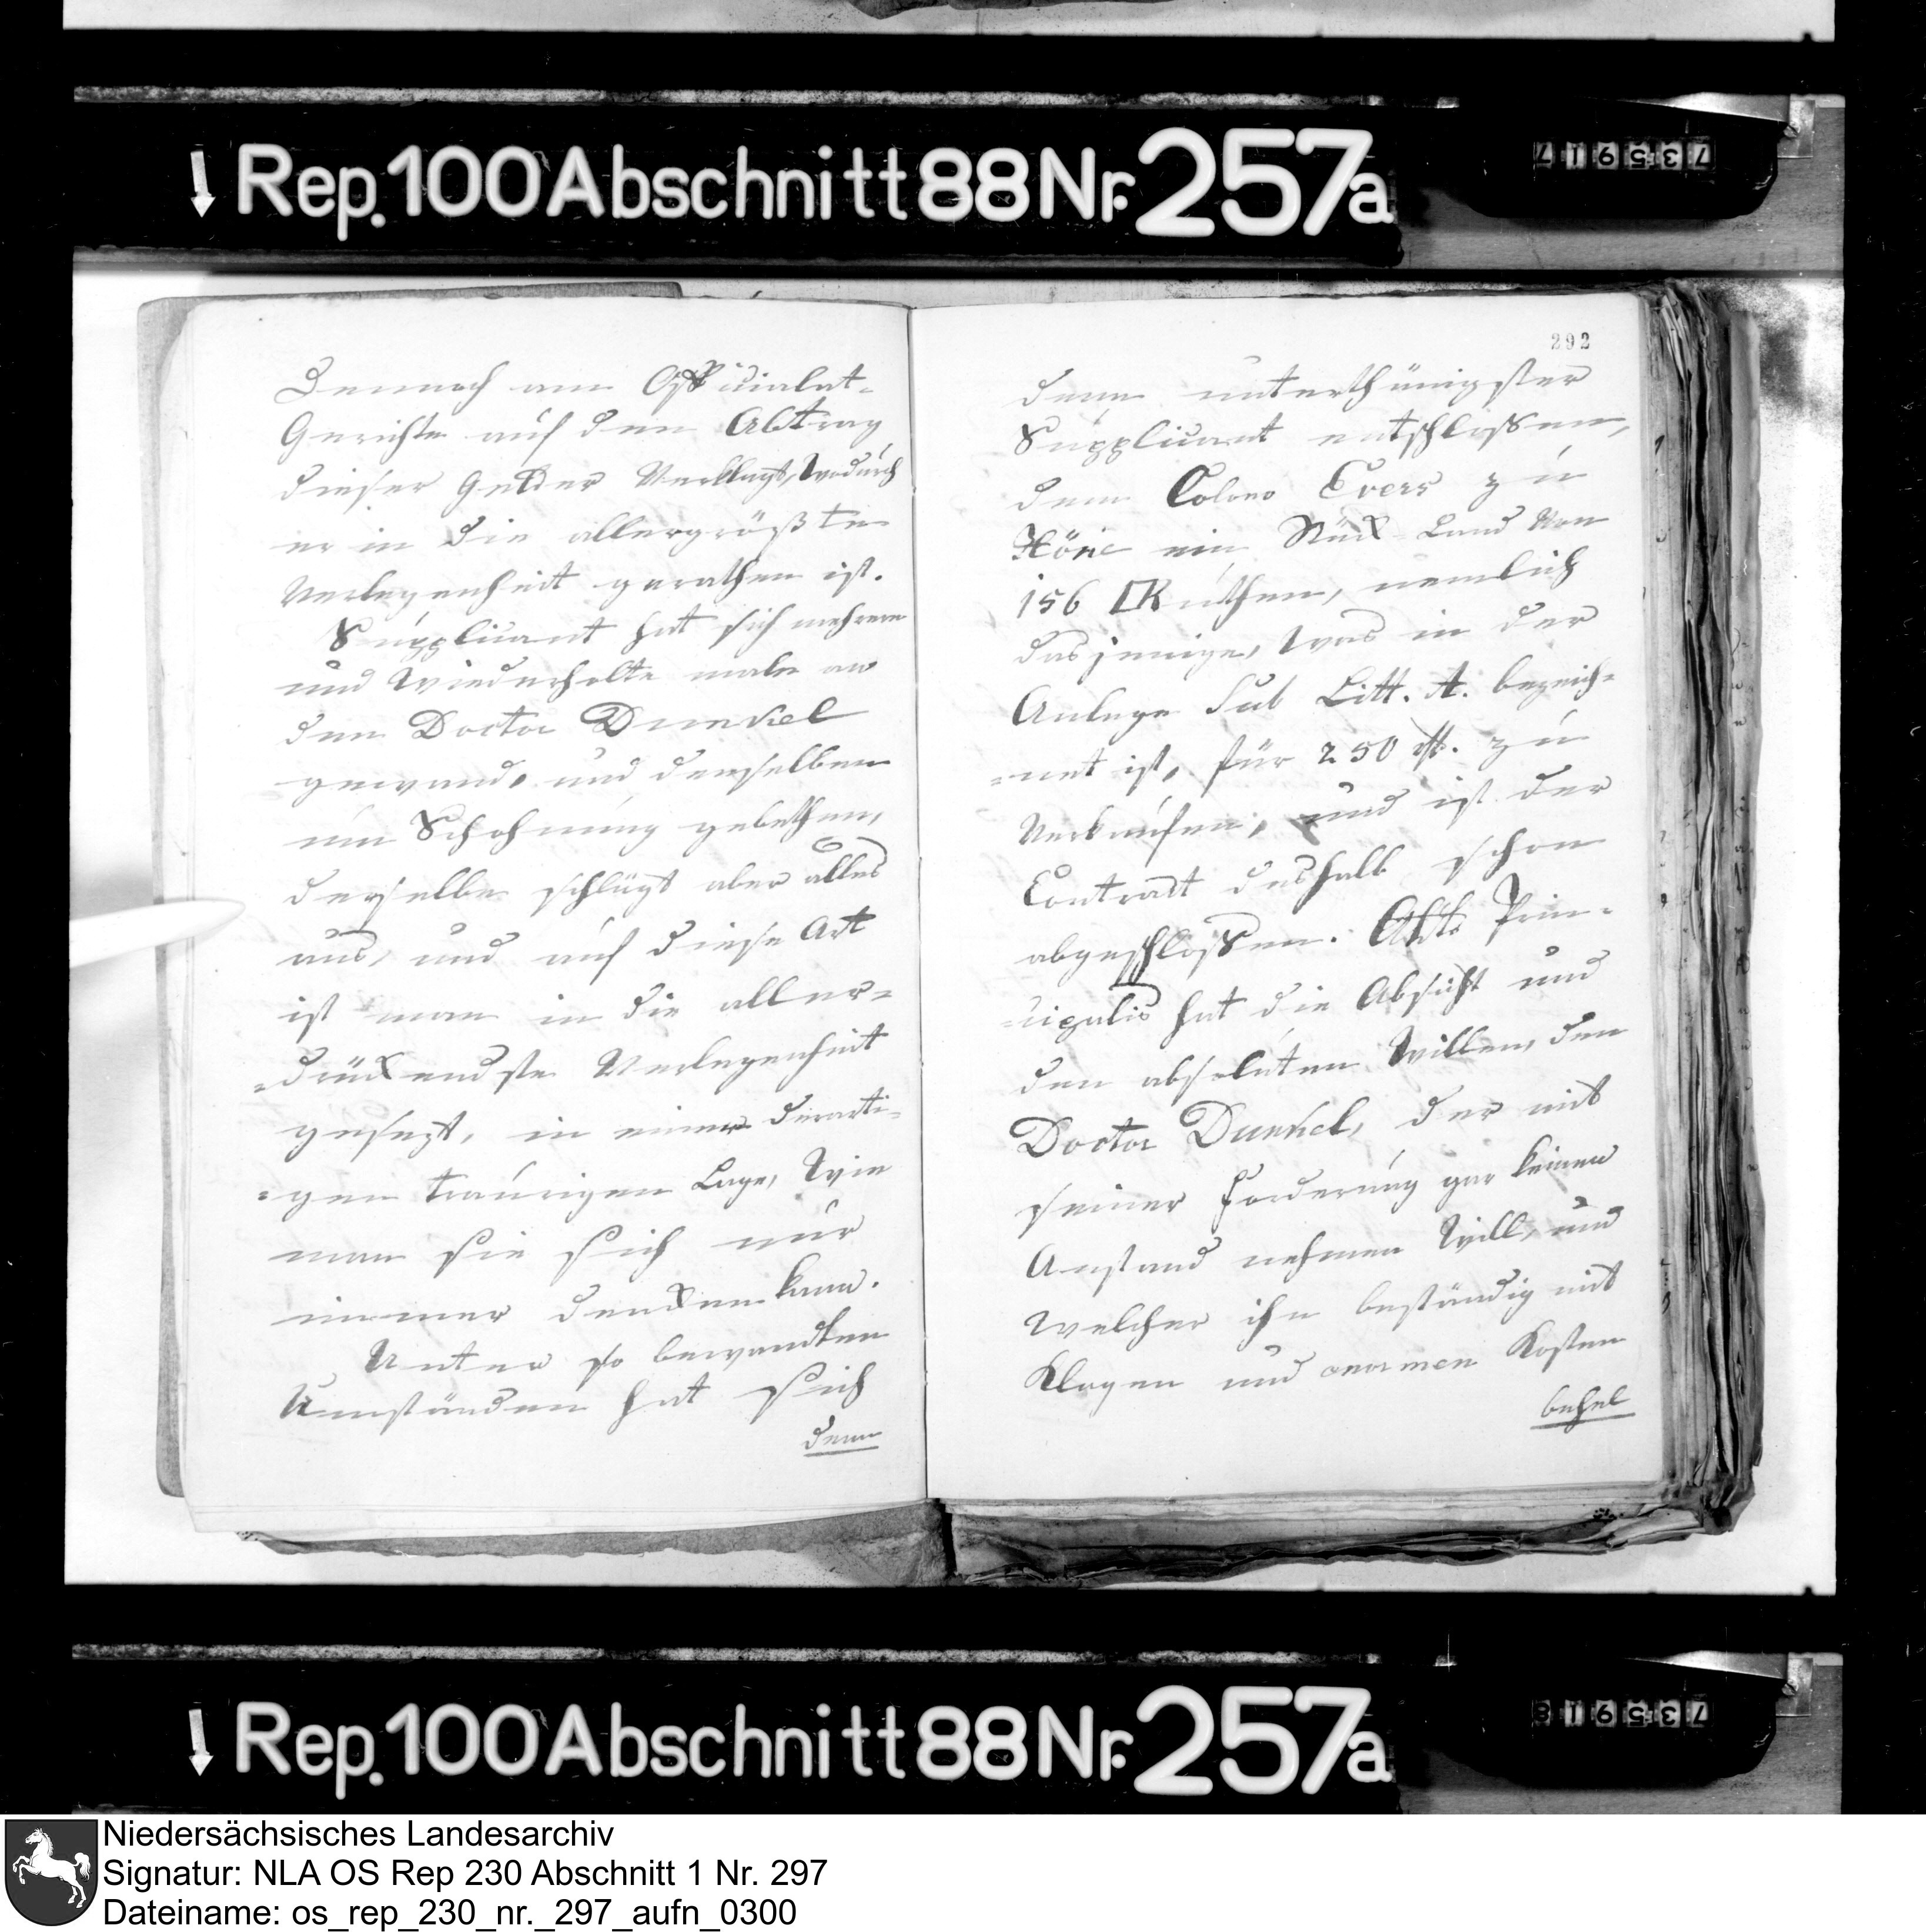 ↓ Rep. 100 Abschnitt 88 Nr. 257a
735917
Dennoch am Officialat-
Gerichte auf den Abtrag
dieser Gelder verklagt, wodurch
er in die allergrößte
Verlegenheit gerathen ist.
Supplicant hat sich mehrere
und wiederholte male an
den Doctor Dunckel
gewand, und denselben
um Schohnung gebethen,
derselbe schlägt aber alles
aus, und auf diese Art
ist man in die aller-
=drückendste Verlegenheit
gesezt, in einer derarti-
=gen traurigen Lage, wie
man sie sich nur
immer dencken kann.
Unter so bewandten
Umständen hat sich
denn
292
denn unterthänigster
Supplicant entschlossen,
dem Colono Evers zu
Höne ein Stück Land von
156 □Ruthen, nemlich
dasjenige, was in der
Anlage sub Litt. A. bezeich-
=net ist, für 250 rt. zu
verkaufen, und ist der
Contract deshalb schon
abgeschlossen. Prin-
=cipalis hat die Absicht und
den absoluten Willen, den
Doctor Dunckel, der mit
seiner Forderung gar keinen
Anstand nehmen will, und
welcher ihn beständig mit
Klagen und enormen Kosten
behel
↓ Rep. 100 Abschnitt 88 Nr. 257a
735918
Niedersächsisches Landesarchiv
Signatur: NLA OS Rep 230 Abschnitt 1 Nr. 297
Dateiname: os_rep_230_nr._297_aufn_0300